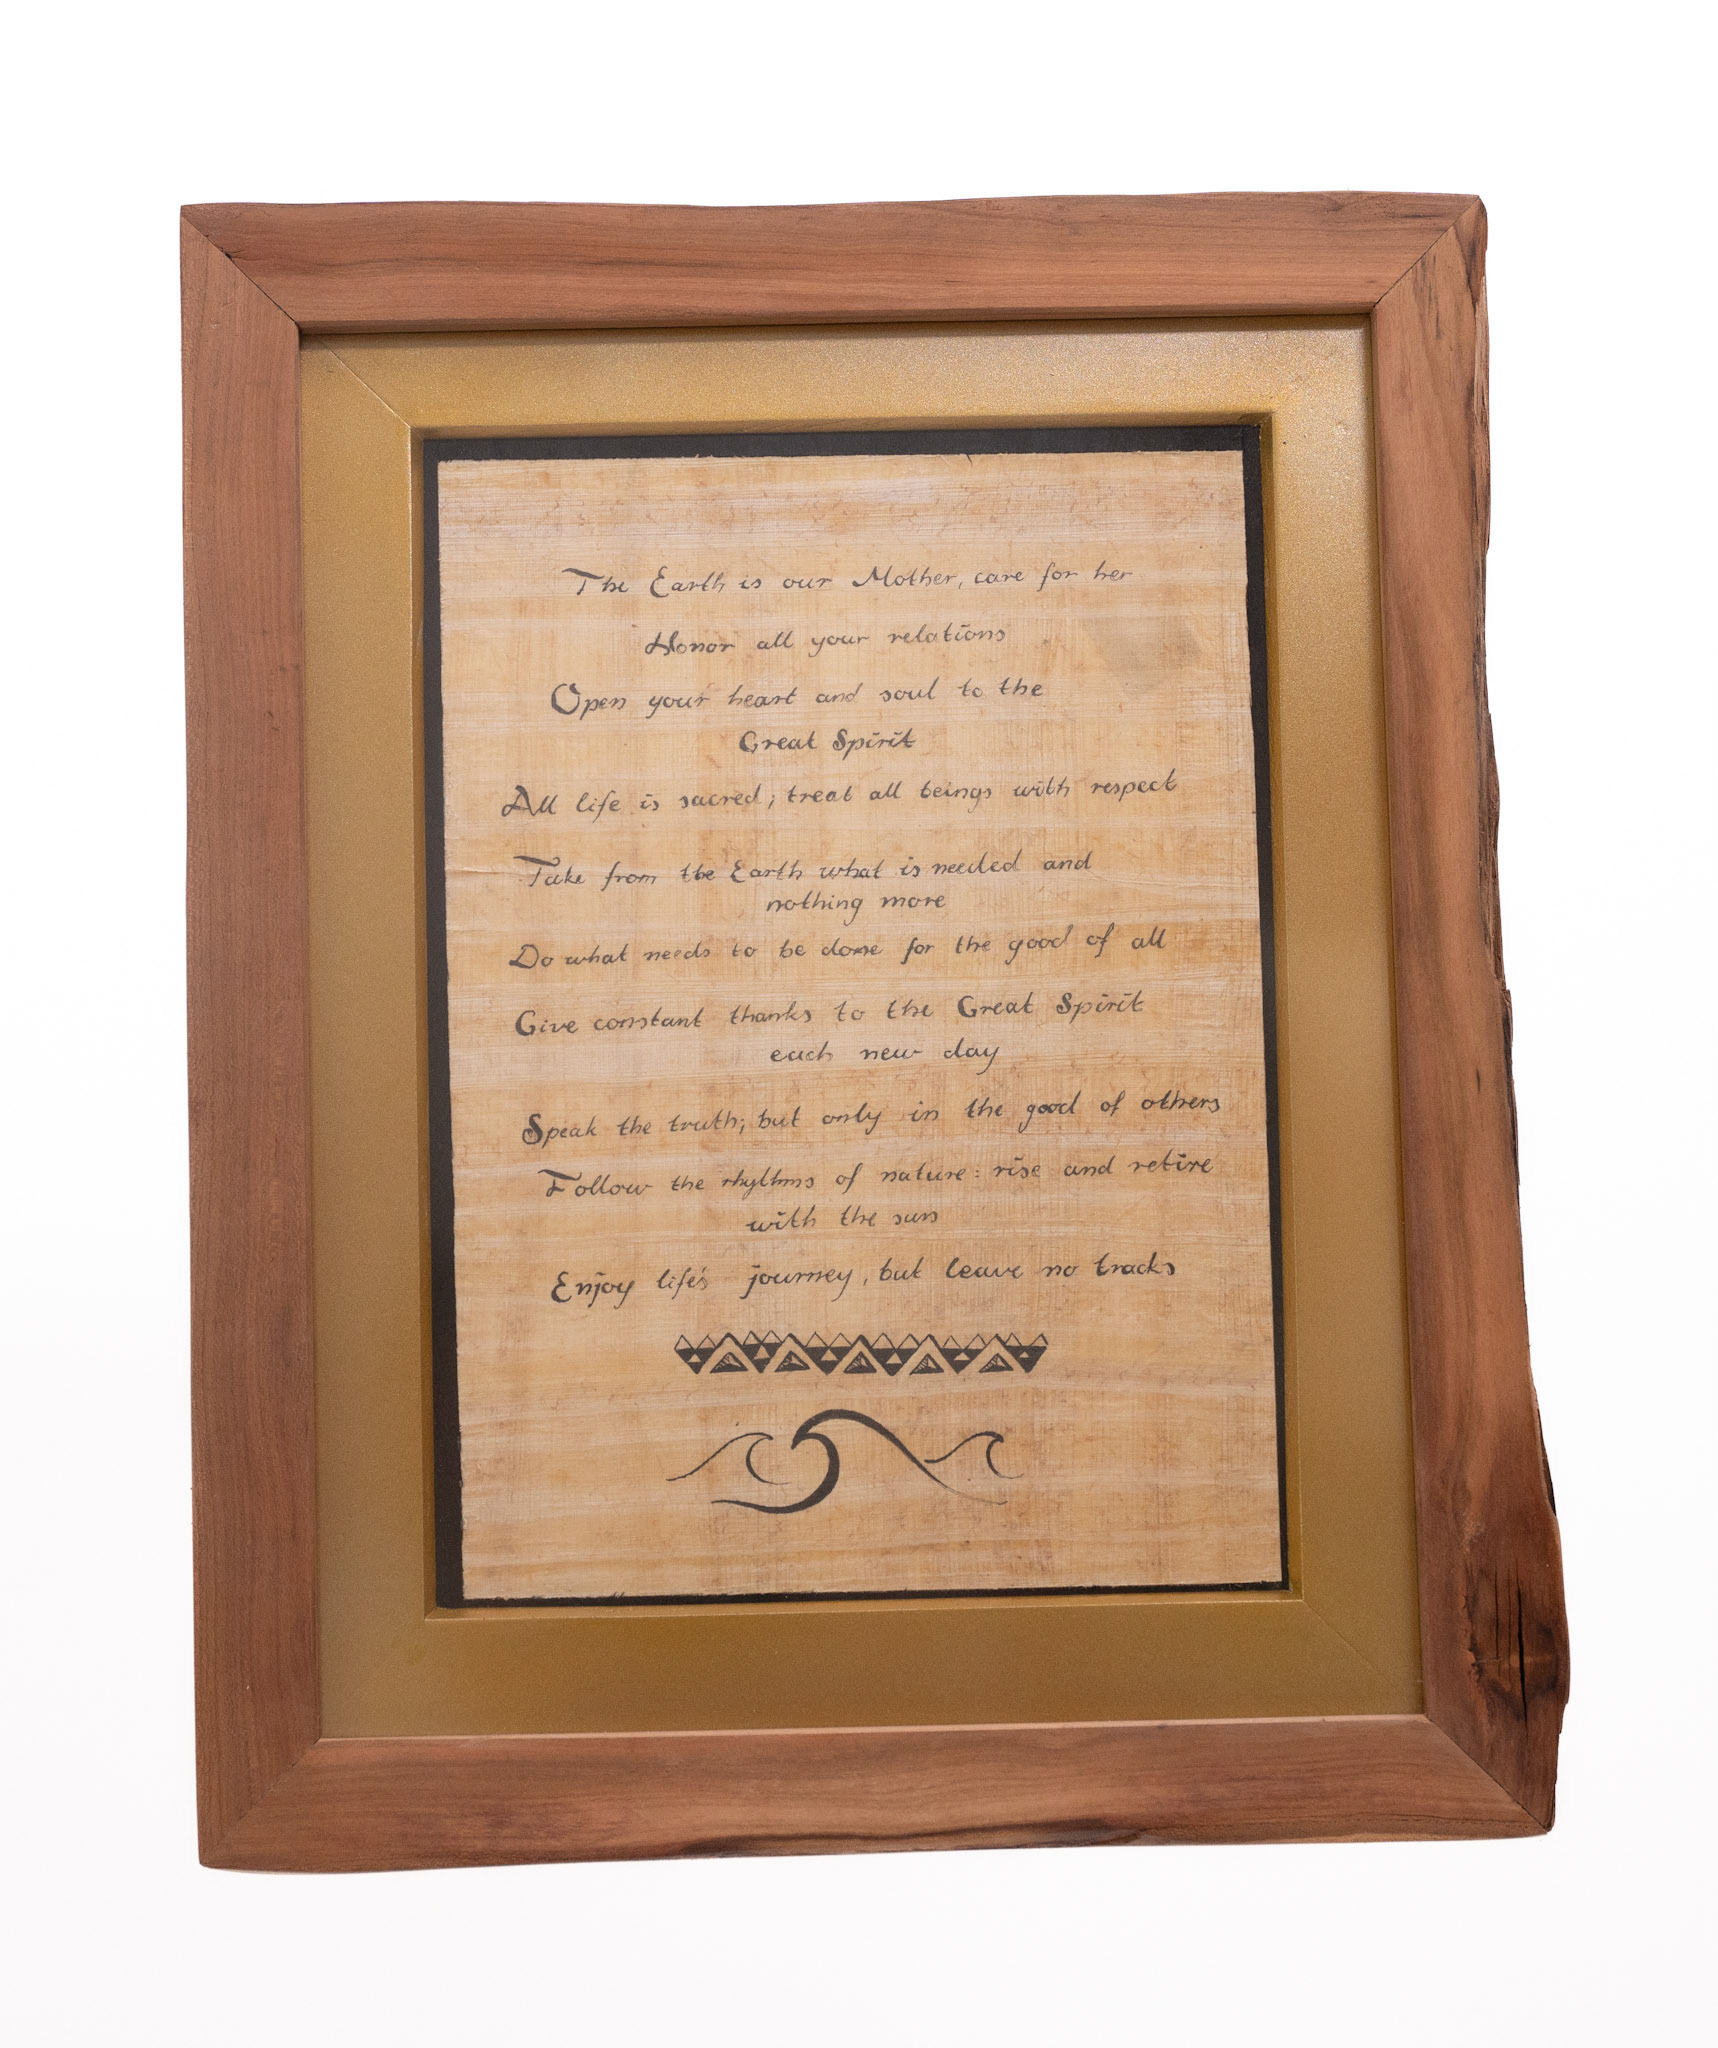 The Earth is our Mother, care for her
Honor all your relations
Open your heart and soul to the
Great Spirit
All life is sacred; treat all beings with respect
Take from the Earth what is needed and
nothing more
Do what needs to be done for the good of all
Give constant thanks to the Great Spirit
each new day
Speak the truth; but only in the good of others
Follow the rhythms of nature: rise and retire
with the sun
Enjoy life's journey, but leave no tracks